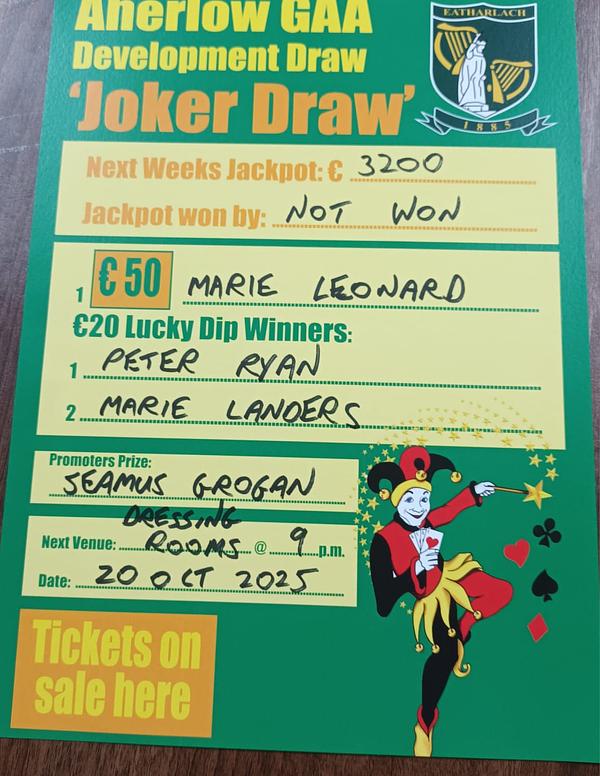 Aherlow GAA
Development Draw
'Joker Draw'
EATHARLACH
1885
Next Weeks Jackpot: € 3200
Jackpot won by: NOT WON
1 €50 MARIE LEONARD
€20 Lucky Dip Winners:
1 PETER RYAN
2 MARIE LANDERS
Promoters Prize:
SEAMUS GROGAN
DRESSING
Next Venue: ROOMS @ 9 p.m.
Date: 20 OCT 2025
Tickets on
sale here